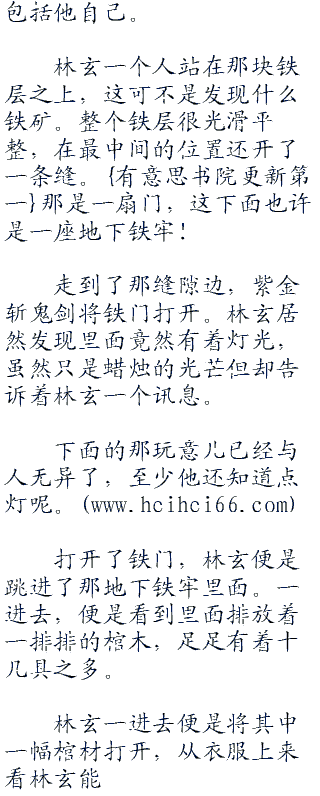 包括他自己。
林玄一个人站在那块铁
层之上，这可不是发现什么
铁矿。整个铁层很光滑平
整，在最中间的位置还开了
一条缝。{有意思书院更新第
一}那是一扇门，这下面也许
是一座地下铁牢！
走到了那缝隙边，紫金
斩鬼剑将铁门打开。林玄居
然发现里面竟然有着灯光，
虽然只是蜡烛的光芒但却告
诉着林玄一个讯息。
下面的那玩意儿已经与
人无异了，至少他还知道点
灯呢。(www.hcihci66.com)
打开了铁门，林玄便是
跳进了那地下铁牢里面。一
进去，便是看到里面排放着
一排排的棺木，足足有着十
几具之多。
林玄一进去便是将其中
一幅棺材打开，从衣服上来
看林玄能